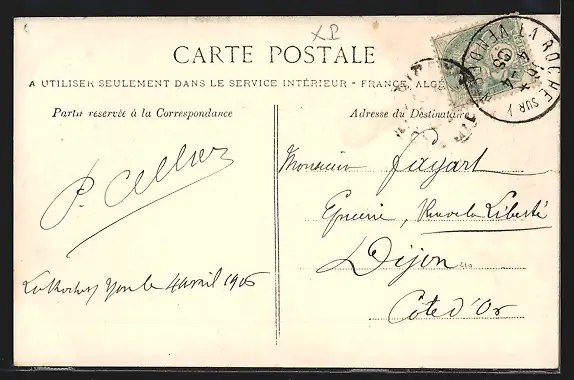 CARTE POSTALE
A UTILISER SEULEMENT DANS LE SERVICE INTÉRIEUR - FRANCE, ALGÉ
Partie réservée à la Correspondance
Adresse du Destinataire
LA ROCHE SUR
Monsieur Fayart
Epicerie, Rue de la Liberté
Dijon
Côte d'Or
P. Cellier
La Roche s/ Yon le 4 avril 1905